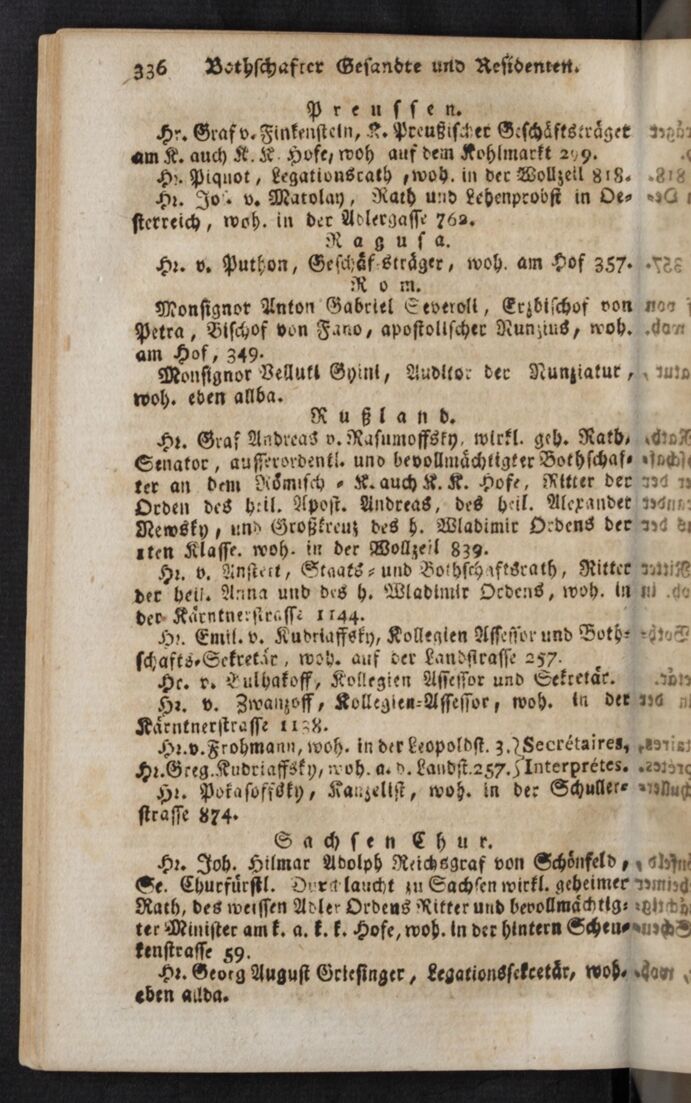 336 Bothschafter Gesandte und Residenten.
Preussen.
Hr. Graf v. Finkenstein, K. Preußischer Geschäftsträger
am K. auch K. K. Hofe, woh auf dem Kohlmarkt 299.
Hr. Piquot, Legationsrath, woh. in der Wollzeil 818.
Hr. Jos. v. Matolay, Rath und Lehenprobst in Oe-
sterreich, woh. in der Adlergasse 762.
Ragusa.
Hr. v. Puthon, Geschäftsträger, woh. am Hof 357.
Rom.
Monsignor Anton Gabriel Severoli, Erzbischof von
Petra, Bischof von Fano, apostolischer Nunzius, woh.
am Hof, 349.
Monsignor Velluti Gyini, Auditor der Nunziatur,
woh. eben allda.
Rußland.
Hr. Graf Andreas v. Rasumoffsky, wirkl. geh. Rath,
Senator, ausserordentl. und bevollmächtigter Bothschaf-
ter an dem Römisch-K. auch K. K. Hofe, Ritter der
Orden des heil. Apost. Andreas, des heil. Alexander
Newsky, und Großkreuz des h. Wladimir Ordens der
1ten Klasse. woh. in der Wollzeil 839.
Hr. v. Anstett, Staats- und Bothschaftsrath, Ritter
der heil. Anna und des h. Wladimir Ordens, woh. in
der Kärntnerstrasse 1144.
Hr. Emil. v. Kudriaffsky, Kollegien Assessor und Both-
schafts-Sekretär, woh. auf der Landstrasse 257.
Hr. v. Bulhakoff, Kollegien Assessor und Sekretär.
Hr. v. Zwanzoff, Kollegien-Assessor, woh. in der
Kärntnerstrasse 1138.
Hr. v. Frohmann, woh. in der Leopoldst. 3. } Secrétaires,
Hr. Greg. Kudriaffsky, woh. a. d. Landst. 257. } Interprétes.
Hr. Pokasoffsky, Kanzelist, woh. in der Schuller-
strasse 874.
Sachsen Chur.
Hr. Joh. Hilmar Adolph Reichsgraf von Schönfeld,
Se. Churfürstl. Durchlaucht zu Sachsen wirkl. geheimer
Rath, des weissen Adler Ordens Ritter und bevollmächtig-
ter Minister am k. a. k. k. Hofe, woh. in der hintern Scheu-
kenstrasse 59.
Hr. Georg August Griesinger, Legationssekretär, woh.
eben allda.